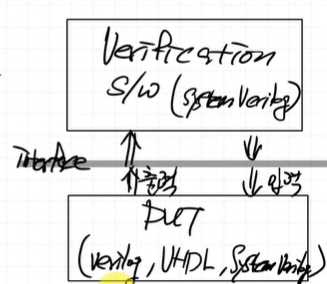 Verification
S/W (System Verilog)
Interface
출력 입력
DUT
(Verilog, VHDL, System Verilog)